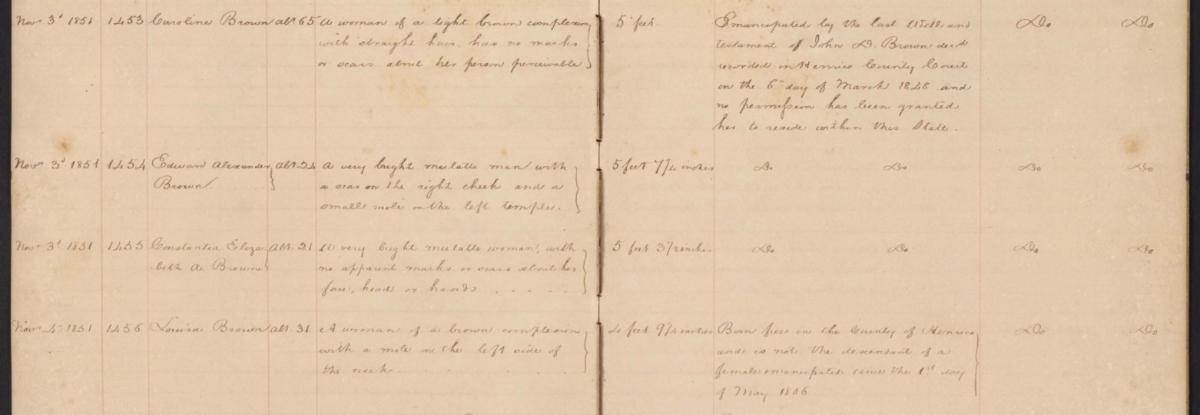 Novr 3d 1851 1453 Caroline Brown abt 65 A woman of a light brown complexion 5 feet Emancipated by the last Will and Do Do
with straight hair, has no marks testament of John D. Brown decd
or scars about her person perceivable recorded in Henrico County Court
on the 6th day of March 1848 and
no permission has been granted
her to reside within this State.
Novr 3d 1851 1454 Edward Alexander abt. 24 A very bright mulatto man with 5 feet 7 1/4 inches Do Do Do Do
Brown a scar on the right cheek and a
small mole on the left temple.
Novr 3d 1851 1455 Constantia Eliza abt. 21 A very bright mulatto woman, with 5 feet 3 inches Do Do Do Do
beth A. Brown no apparent marks or scars about her
face, head or hands
Novr 4th 1851 1456 Louisa Brown abt 31 A woman of a brown complexion 4 feet 9 1/4 inches Born free in the County of Henrico Do Do
with a mole on the left side of and is not the descendant of a
the neck female emancipated since the 1st day
of May 1806